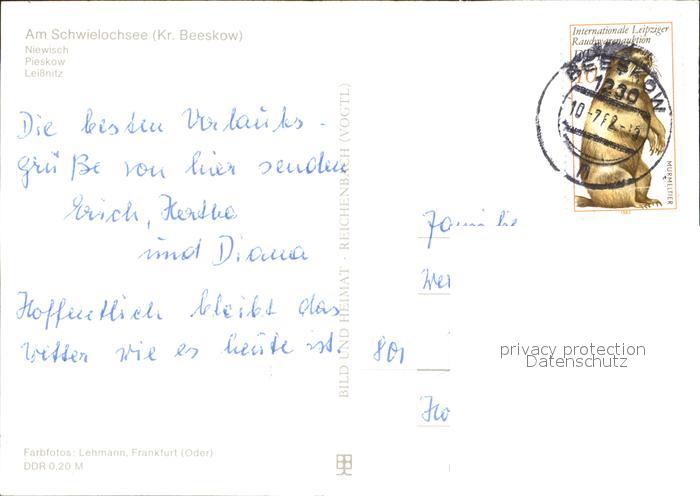 Am Schwielochsee (Kr. Beeskow)
Niewisch
Pieskow
Leißnitz
Die besten Urlaubs-
grüße von hier senden
Erich, Hertha
und Diana
Hoffentlich bleibt das
Wetter wie es heute ist.
Farbfotos: Lehmann, Frankfurt (Oder)
DDR 0,20 M
BILD UND HEIMAT · REICHENBACH (VOGTL)
Internationale Leipziger
Rauchwarenauktion
DDR
10
MURMELTIER
1982
BEESKOW
1230
10-7.82-15
Familie
801
privacy protection
Datenschutz